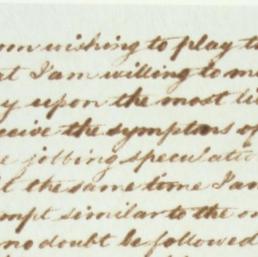 am wishing to play t
at I am willing to m
y upon the most li
ceive the symptons of
e jobbing speculatio
t the same time I am
empt similar to the o
no doubt be followed